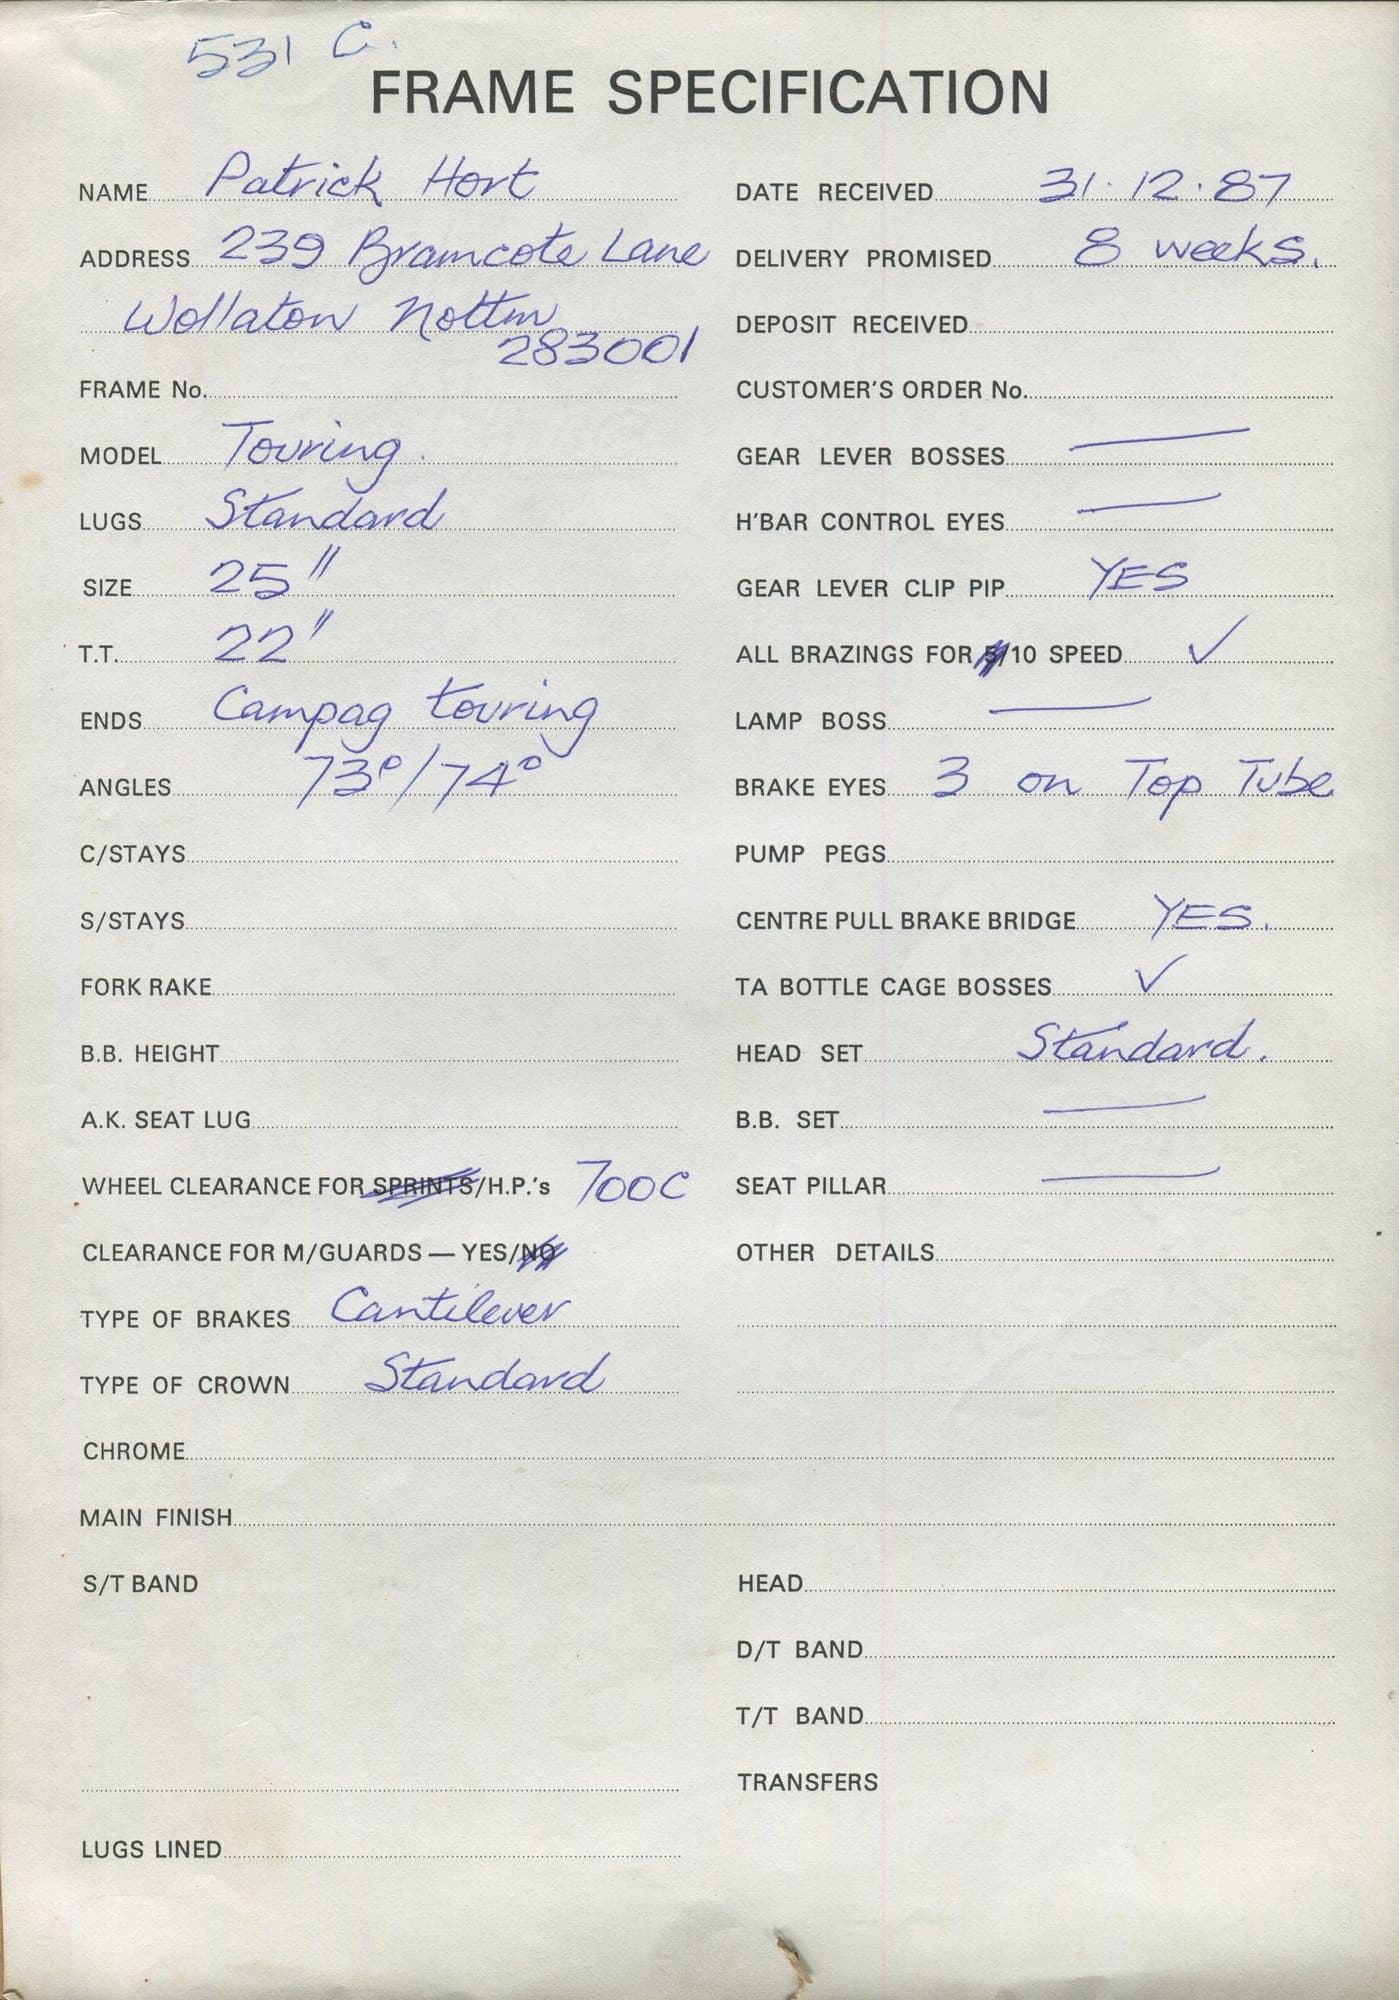 531 C.
FRAME SPECIFICATION
NAME Patrick Hort
ADDRESS 239 Bramcote Lane
Wollaton Nottm
283001
FRAME No.
MODEL Touring.
LUGS Standard
SIZE 25"
T.T. 22"
ENDS Campag touring
ANGLES 73°/74°
C/STAYS
S/STAYS
FORK RAKE
B.B. HEIGHT
A.K. SEAT LUG
WHEEL CLEARANCE FOR SPRINTS/H.P.'s 700C
CLEARANCE FOR M/GUARDS — YES/NO
TYPE OF BRAKES Cantilever
TYPE OF CROWN Standard
DATE RECEIVED 31.12.87
DELIVERY PROMISED 8 weeks.
DEPOSIT RECEIVED
CUSTOMER'S ORDER No.
GEAR LEVER BOSSES —
H'BAR CONTROL EYES —
GEAR LEVER CLIP PIP YES
ALL BRAZINGS FOR 5/10 SPEED ✓
LAMP BOSS —
BRAKE EYES 3 on Top Tube
PUMP PEGS
CENTRE PULL BRAKE BRIDGE YES.
TA BOTTLE CAGE BOSSES ✓
HEAD SET Standard.
B.B. SET —
SEAT PILLAR —
OTHER DETAILS
CHROME
MAIN FINISH
S/T BAND
LUGS LINED
HEAD
D/T BAND
T/T BAND
TRANSFERS